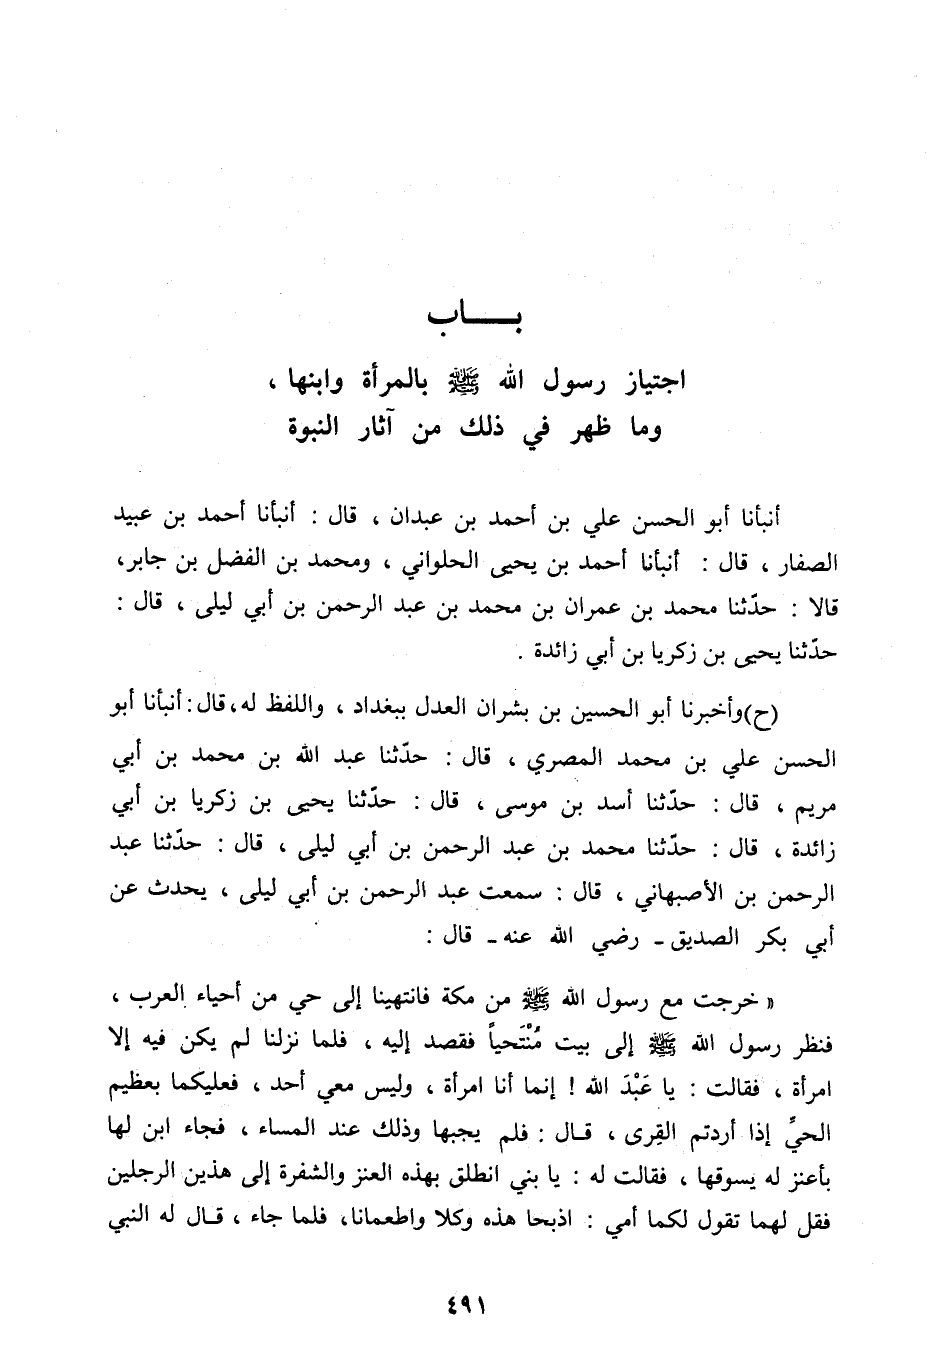 بـــــاب
اجتياز رسول الله ﷺ بالمرأة وابنها ،
وما ظهر في ذلك من آثار النبوة
أنبأنا أبو الحسن علي بن أحمد بن عبدان ، قال : أنبأنا أحمد بن عبيد
الصفار ، قال : أنبأنا أحمد بن يحيى الحلواني ، ومحمد بن الفضل بن جابر،
قالا : حدّثنا محمد بن عمران بن محمد بن عبد الرحمن بن أبي ليلى ، قال :
حدّثنا يحيى بن زكريا بن أبي زائدة .
(ح) وأخبرنا أبو الحسين بن بشران العدل ببغداد ، واللفظ له، قال: أنبأنا أبو
الحسن علي بن محمد المصري ، قال : حدّثنا عبد الله بن محمد بن أبي
مريم ، قال : حدّثنا أسد بن موسى ، قال : حدّثنا يحيى بن زكريا بن أبي
زائدة ، قال : حدّثنا محمد بن عبد الرحمن بن أبي ليلى ، قال : حدّثنا عبد
الرحمن بن الأصبهاني ، قال : سمعت عبد الرحمن بن أبي ليلى ، يحدث عن
أبي بكر الصديق ـ رضي الله عنه ـ قال :
« خرجت مع رسول الله ﷺ من مكة فانتهينا إلى حي من أحياء العرب ،
فنظر رسول الله ﷺ إلى بيت مُنْتَحياً فقصد إليه ، فلما نزلنا لم يكن فيه إلا
امرأة ، فقالت : يا عَبْدَ الله ! إنما أنا امرأة ، وليس معي أحد ، فعليكما بعظيم
الحيِّ إذا أردتم القِرى ، قـال : فلم يجبها وذلك عند المساء ، فجاء ابن لها
بأعنز له يسوقها ، فقالت له : يا بني انطلق بهذه العنز والشفرة إلى هذين الرجلين
فقل لهما تقول لكما أمي : اذبحا هذه وكلا واطعمانا، فلما جاء ، قـال له النبي
٤٩١